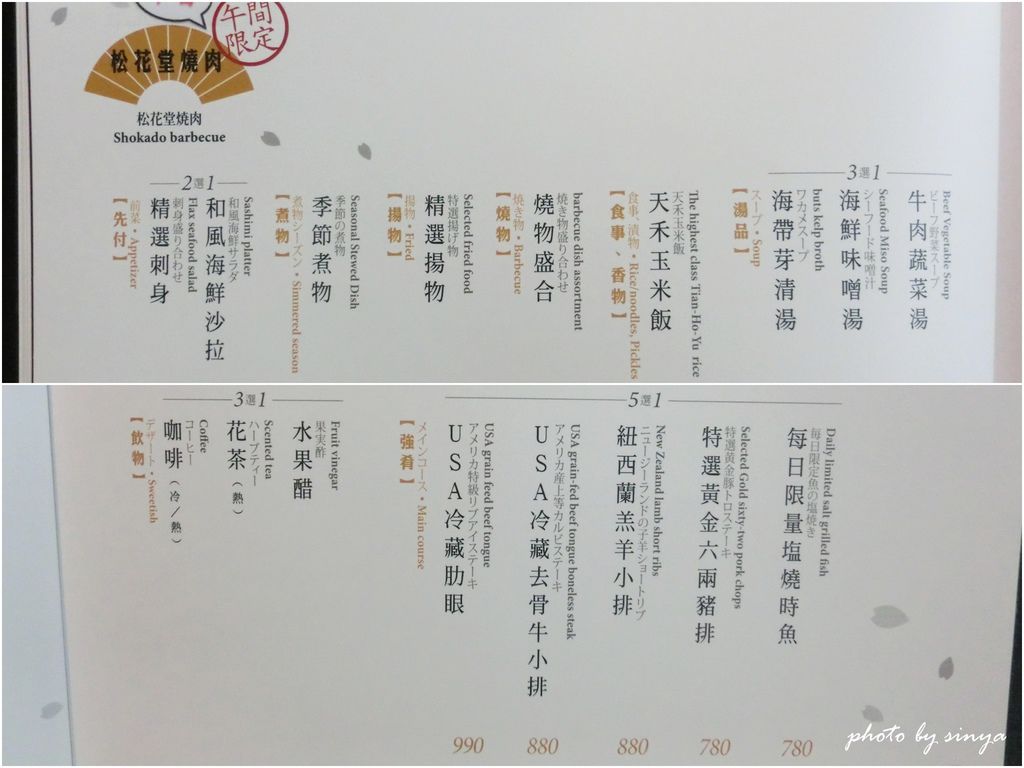 午間
限定
松花堂燒肉
松花堂燒肉
Shokado barbecue
3選1
Beef Vegetable Soup
ビーフ野菜スープ
牛肉蔬菜湯
Seafood Miso Soup
シーフード味噌汁
海鮮味噌湯
buts kelp broth
ワカメスープ
海帶芽清湯
スープ・Soup
【湯品】
The highest class Tian-Ho-Yu rice
天禾玉米飯
天禾玉米飯
食事、漬物・Rice/noodles, Pickles
【食事、香物】
barbecue dish assortment
焼き物盛り合わせ
燒物盛合
焼き物・Barbecue
【燒物】
Selected fried food
特選揚げ物
精選揚物
揚物・Fried
【揚物】
Seasonal Stewed Dish
季節の煮物
季節煮物
煮物シーズン・Simmered season
【煮物】
2選1
Sashimi platter
和風海鮮サラダ
和風海鮮沙拉
Flax seafood salad
刺身盛り合わせ
精選刺身
前菜・Appetizer
【先付】
5選1
Daily limited salt grilled fish
毎日限定魚の塩焼き
每日限量塩燒時魚
780
Selected Gold sixty-two pork chops
特選黄金豚トロステーキ
特選黃金六兩豬排
780
New Zealand lamb short ribs
ニュージーランドの子羊ショートリブ
紐西蘭羔羊小排
880
USA grain-fed beef tongue boneless steak
アメリカ産上等カルビステーキ
USA冷藏去骨牛小排
880
USA grain feed beef tongue
アメリカ特級リブアイステーキ
USA冷藏肋眼
990
メインコース・Main course
【強肴】
3選1
Fruit vinegar
果実酢
水果醋
Scented tea
ハーブティー
花茶（熱）
Coffee
コーヒー
咖啡（冷／熱）
デザート・Sweetish
【飲物】
photo by sinya